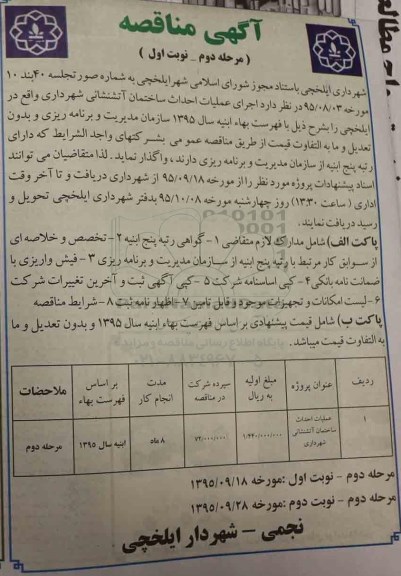 آگهی مناقصه
( مرحله دوم _ نوبت اول )
شهرداری ایلخچی باستناد مجوز شورای اسلامی شهر ایلخچی به شماره صورتجلسه ۴۰ بند ۱۰
مورخه ۹۵/۰۸/۰۳ در نظر دارد اجرای عملیات احداث ساختمان آتشنشانی شهرداری واقع در
ایلخچی را بشرح ذیل با فهرست بهاء ابنیه سال ۱۳۹۵ سازمان مدیریت و برنامه ریزی و بدون
تعدیل و ما به التفاوت قیمت از طریق مناقصه عمومی بشرکتهای واجد الشرایط که دارای
رتبه پنج ابنیه از سازمان مدیریت و برنامه ریزی دارند ، واگذار نماید . لذا متقاضیان می توانند
اسناد پیشنهادات پروژه مورد نظر را از مورخه ۹۵/۰۹/۱۸ از شهرداری دریافت و تا آخر وقت
اداری ( ساعت ۱۳:۳۰) روز چهارشنبه مورخه ۹۵/۱۰/۰۸ بدفتر شهرداری ایلخچی تحویل و
رسید دریافت نمایند .
پاکت الف) شامل مدارک لازم متقاضی ۱- گواهی رتبه پنج ابنیه ۲- تخصص و خلاصه ای
از سوابق کار مرتبط با رتبه پنج ابنیه از سازمان مدیریت و برنامه ریزی ۳- فیش واریزی یا
ضمانت نامه بانکی ۴- کپی اساسنامه شرکت ۵- کپی آگهی ثبت و آخرین تغییرات شرکت
۶- لیست امکانات و تجهیزات موجود و قابل تامین ۷- اظهار نامه ثبت ۸- شرایط مناقصه
پاکت ب) شامل قیمت پیشنهادی بر اساس فهرست بهاء ابنیه سال ۱۳۹۵ و بدون تعدیل و ما
به التفاوت قیمت میباشد .
ردیف عنوان پروژه مبلغ اولیه به ریال سپرده شرکت در مناقصه مدت انجام کار بر اساس فهرست بهاء ملاحضات
۱ عملیات احداث ساختمان آتشنشانی شهرداری ۱/۴۴۰/۰۰۰/۰۰۰ ۷۲/۰۰۰/۰۰۰ ۸ ماه ابنیه سال ۱۳۹۵ مرحله دوم
مرحله دوم - نوبت اول :مورخه ۱۳۹۵/۰۹/۱۸
مرحله دوم - نوبت دوم :مورخه ۱۳۹۵/۰۹/۲۸
نجمی - شهردار ایلخچی